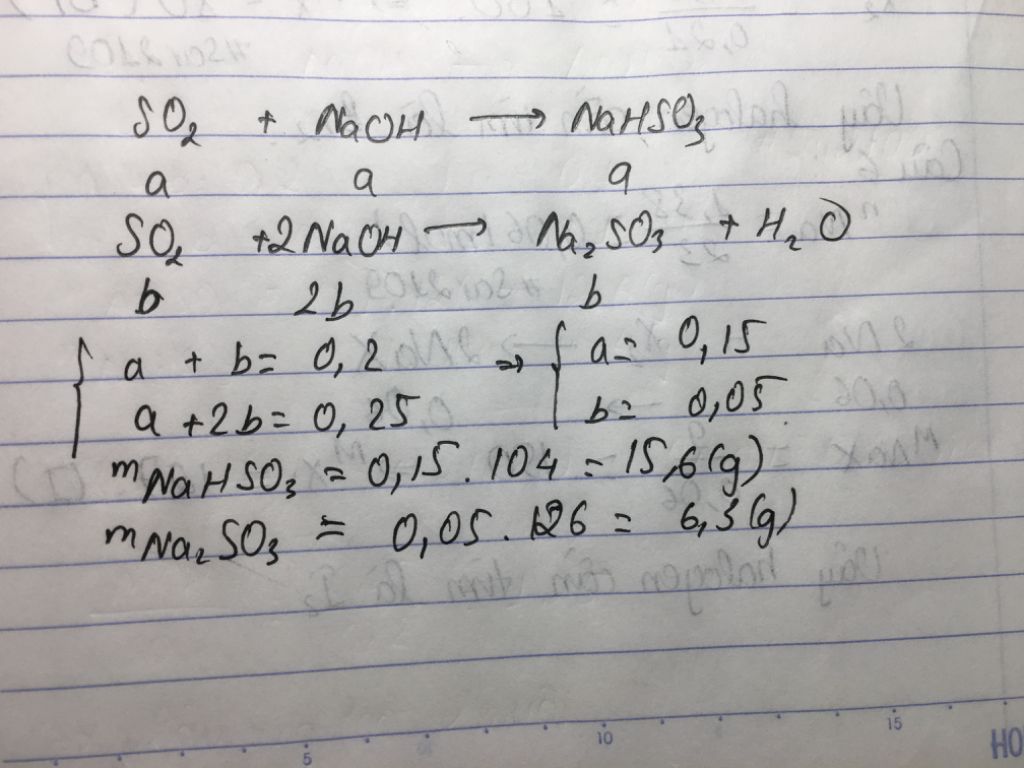 SO₂ + NaOH → NaHSO₃
a a a
SO₂ +2NaOH → Na₂SO₃ + H₂O
b 2b b
{ a + b = 0,2 ⇒ { a = 0,15
a + 2b = 0,25 b = 0,05
mNaHSO₃ = 0,15 . 104 = 15,6 (g)
mNa₂SO₃ = 0,05 . 126 = 6,3 (g)
5 10 15
HO